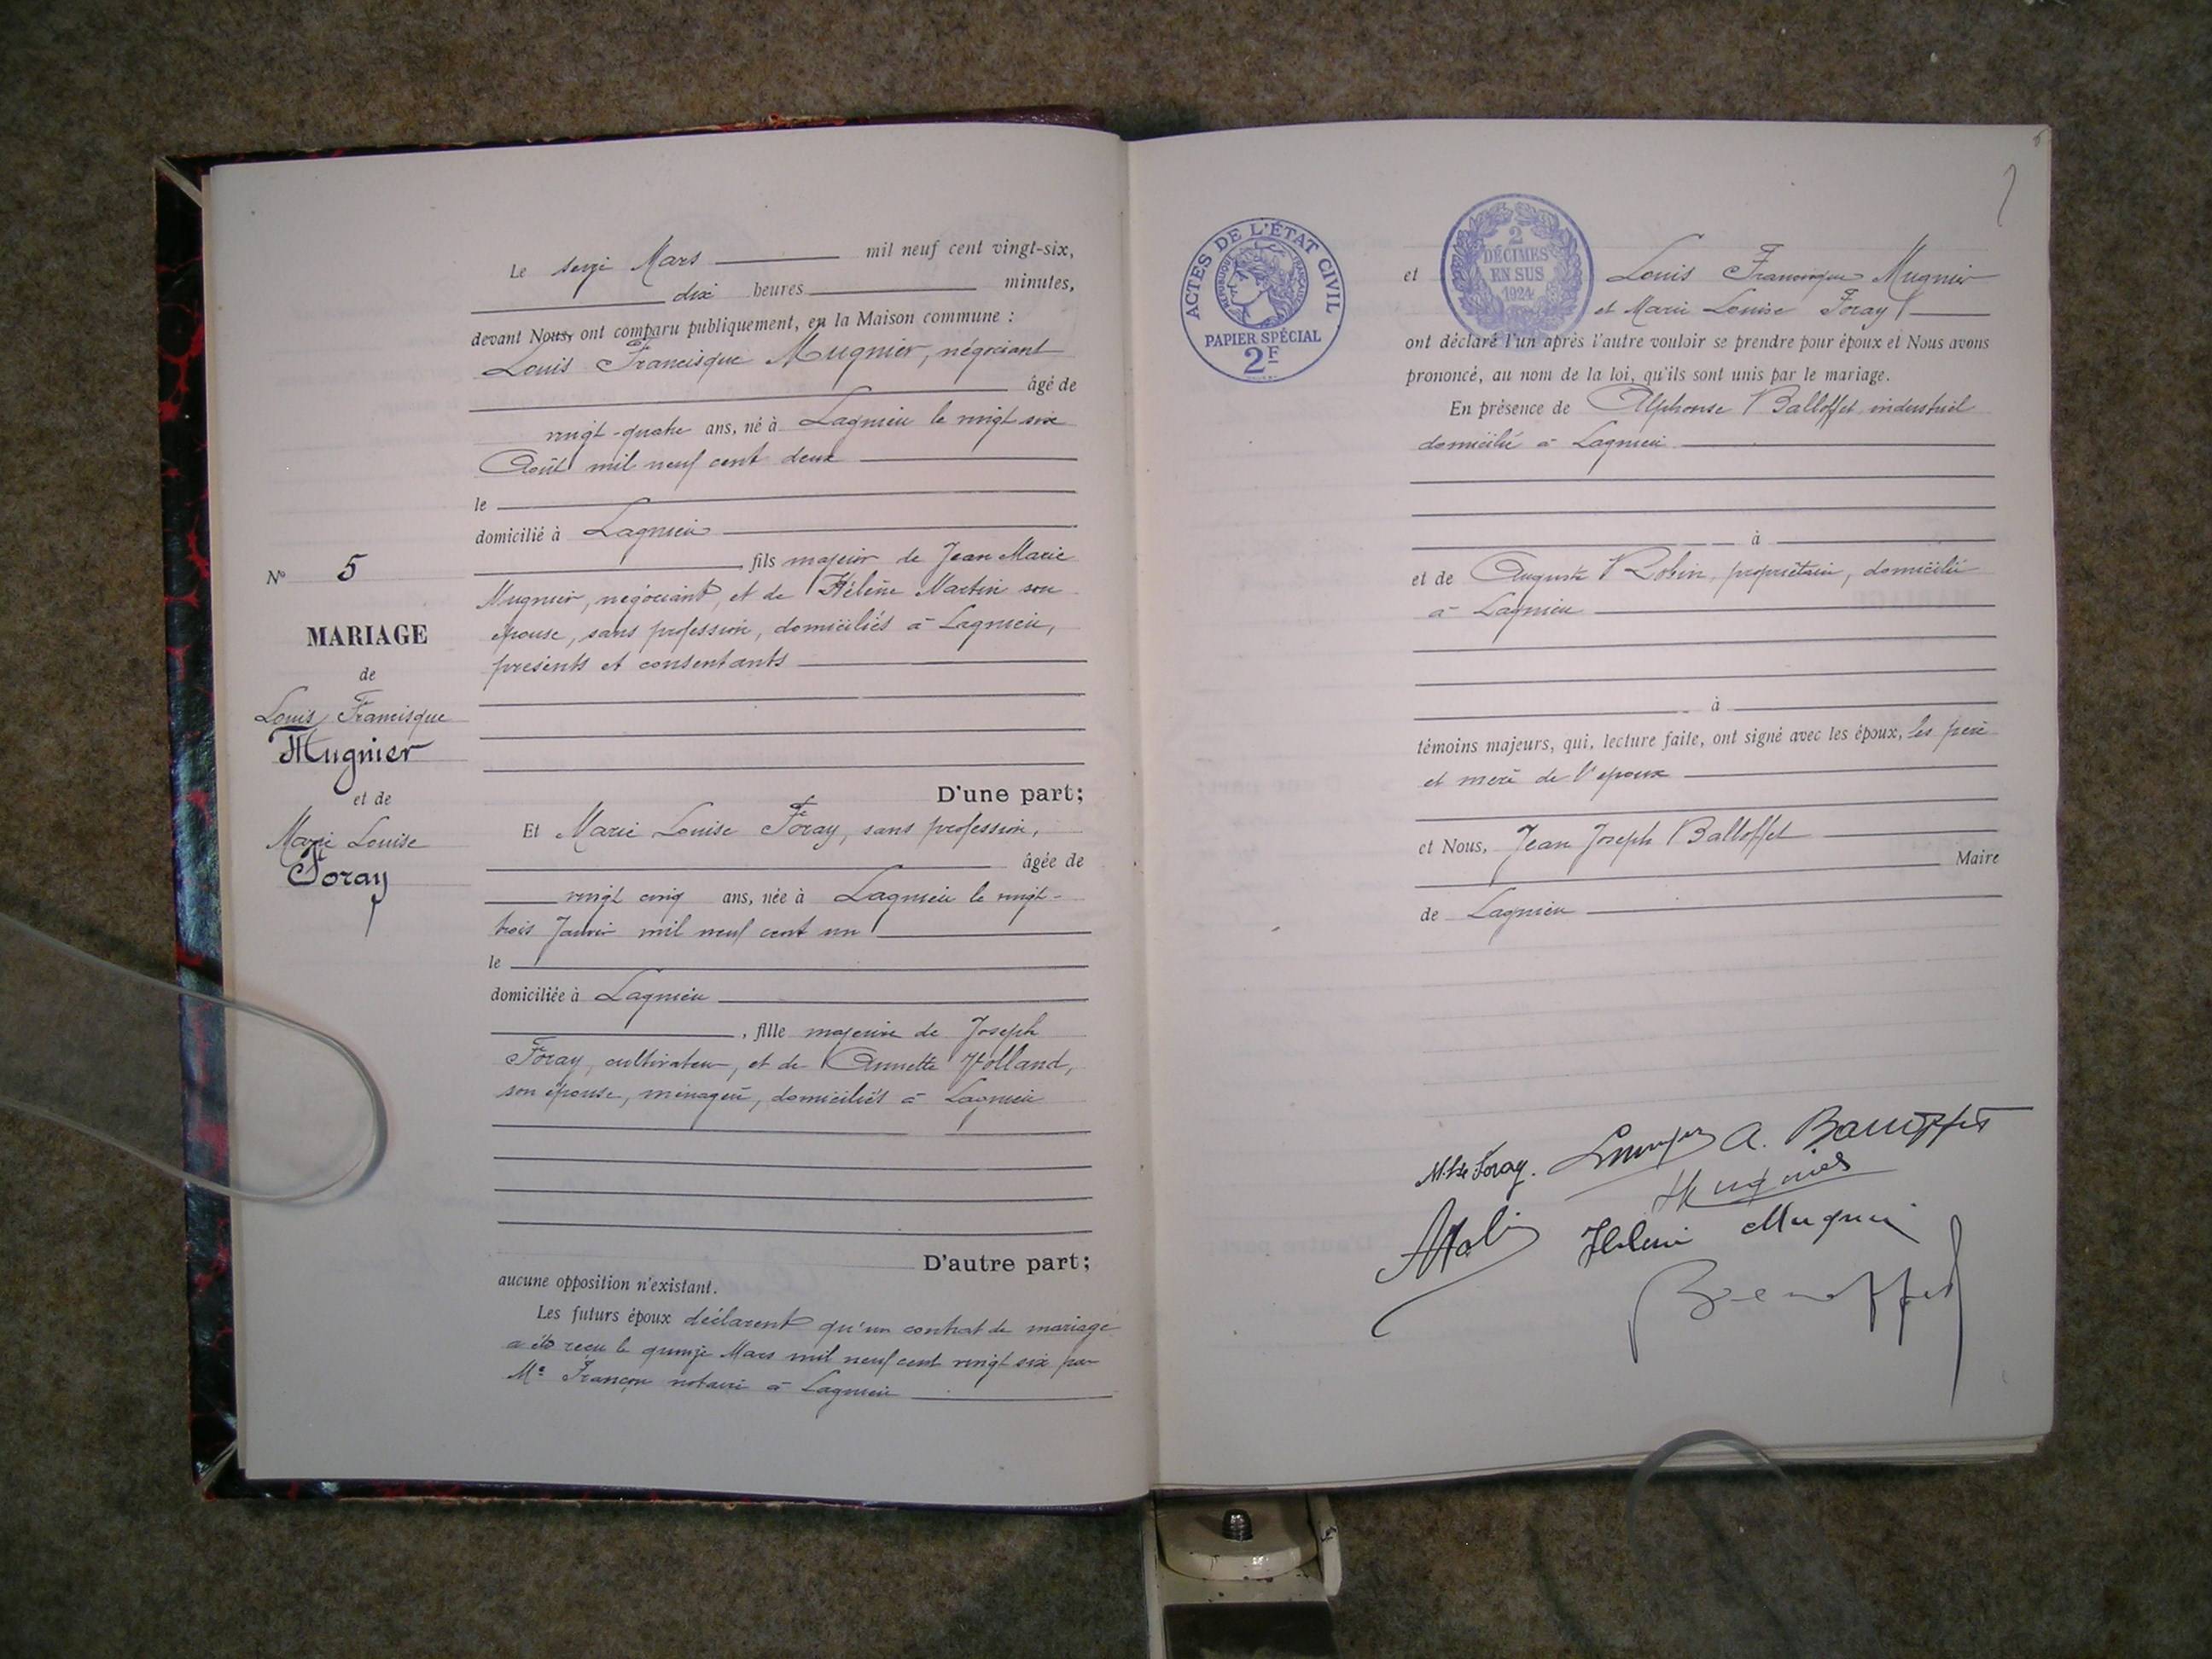 N° 5
MARIAGE
de
Louis Francisque
Mugnier
et de
Marie Louise
Foray
Le seize Mars mil neuf cent vingt-six,
dix heures minutes,
devant Nous, ont comparu publiquement, en la Maison commune :
Louis Francisque Mugnier, négociant
âgé de
vingt-quatre ans, né à Lagnieu le vingt six
Août mil neuf cent deux
le
domicilié à Lagnieu
, fils majeur de Jean Marie
Mugnier, négociant, et de Hélène Martin son
épouse, sans profession, domiciliés à Lagnieu,
présents et consentants
D'une part;
Et Marie Louise Foray, sans profession,
âgée de
vingt cinq ans, née à Lagnieu le vingt-
trois Janvier mil neuf cent un
le
domiciliée à Lagnieu
, fille majeure de Joseph
Foray, cultivateur, et de Annette Holland,
son épouse, ménagère, domiciliés à Lagnieu
D'autre part;
aucune opposition n'existant.
Les futurs époux déclarent qu'un contrat de mariage
a été reçu le quinze Mars mil neuf cent vingt six par
Me Françon notaire à Lagnieu
ACTES DE L'ÉTAT CIVIL
RÉPUBLIQUE FRANÇAISE
PAPIER SPÉCIAL
2F
2
DÉCIMES
EN SUS
1924
et Louis Francisque Mugnier
et Marie Louise Foray
ont déclaré l'un après l'autre vouloir se prendre pour époux et Nous avons
prononcé, au nom de la loi, qu'ils sont unis par le mariage.
En présence de Alphonse Balloffet industriel
domicilié à Lagnieu
à
et de Auguste Robin, propriétaire, domicilié
à Lagnieu
à
témoins majeurs, qui, lecture faite, ont signé avec les époux, les père
et mère de l'époux
et Nous, Jean Joseph Balloffet
Maire
de Lagnieu
M. Lse Foray. A. Balloffet
Mugnier
Hélène Mugnier
Balloffet